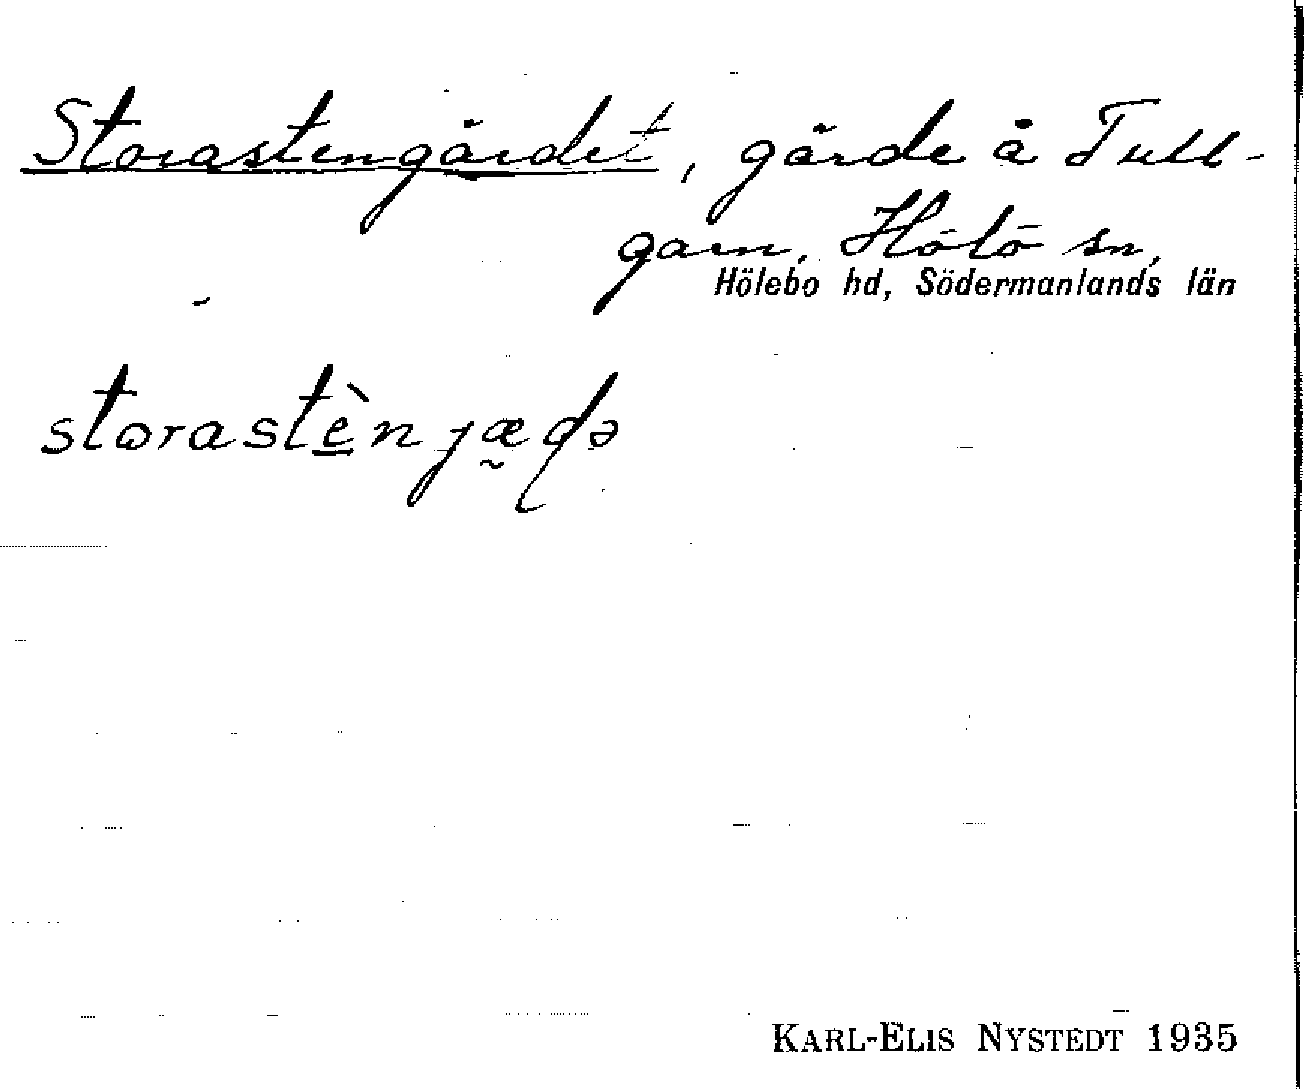 Storastengärdet, gärde å Tull-
garn, Hölö sn,
Hölebo hd, Södermanlands län
storastènjæḍə
KARL-ELIS NYSTEDT 1935